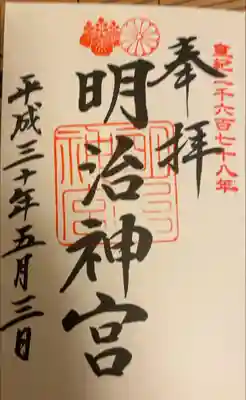 皇紀二千六百七十八年
奉拝
明治神宮
平成三十年五月三日
明治神宮